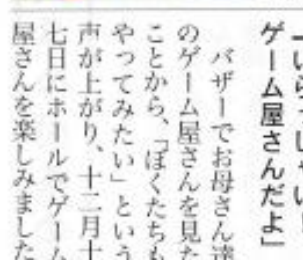 「いらっしゃい！
ゲーム屋さんだよ」
バザーでお母さん達
のゲーム屋さんを見た
ことから、「ぼくたちも
やってみたい」という
声が上がり、十二月十
七日にホールでゲーム
屋さんを楽しみました